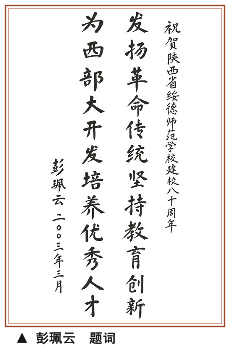 祝贺陕西省绥德师范学校建校八十周年
发扬革命传统坚持教育创新
为西部大开发培养优秀人才
彭珮云 二〇〇三年三月
▲ 彭珮云 题词